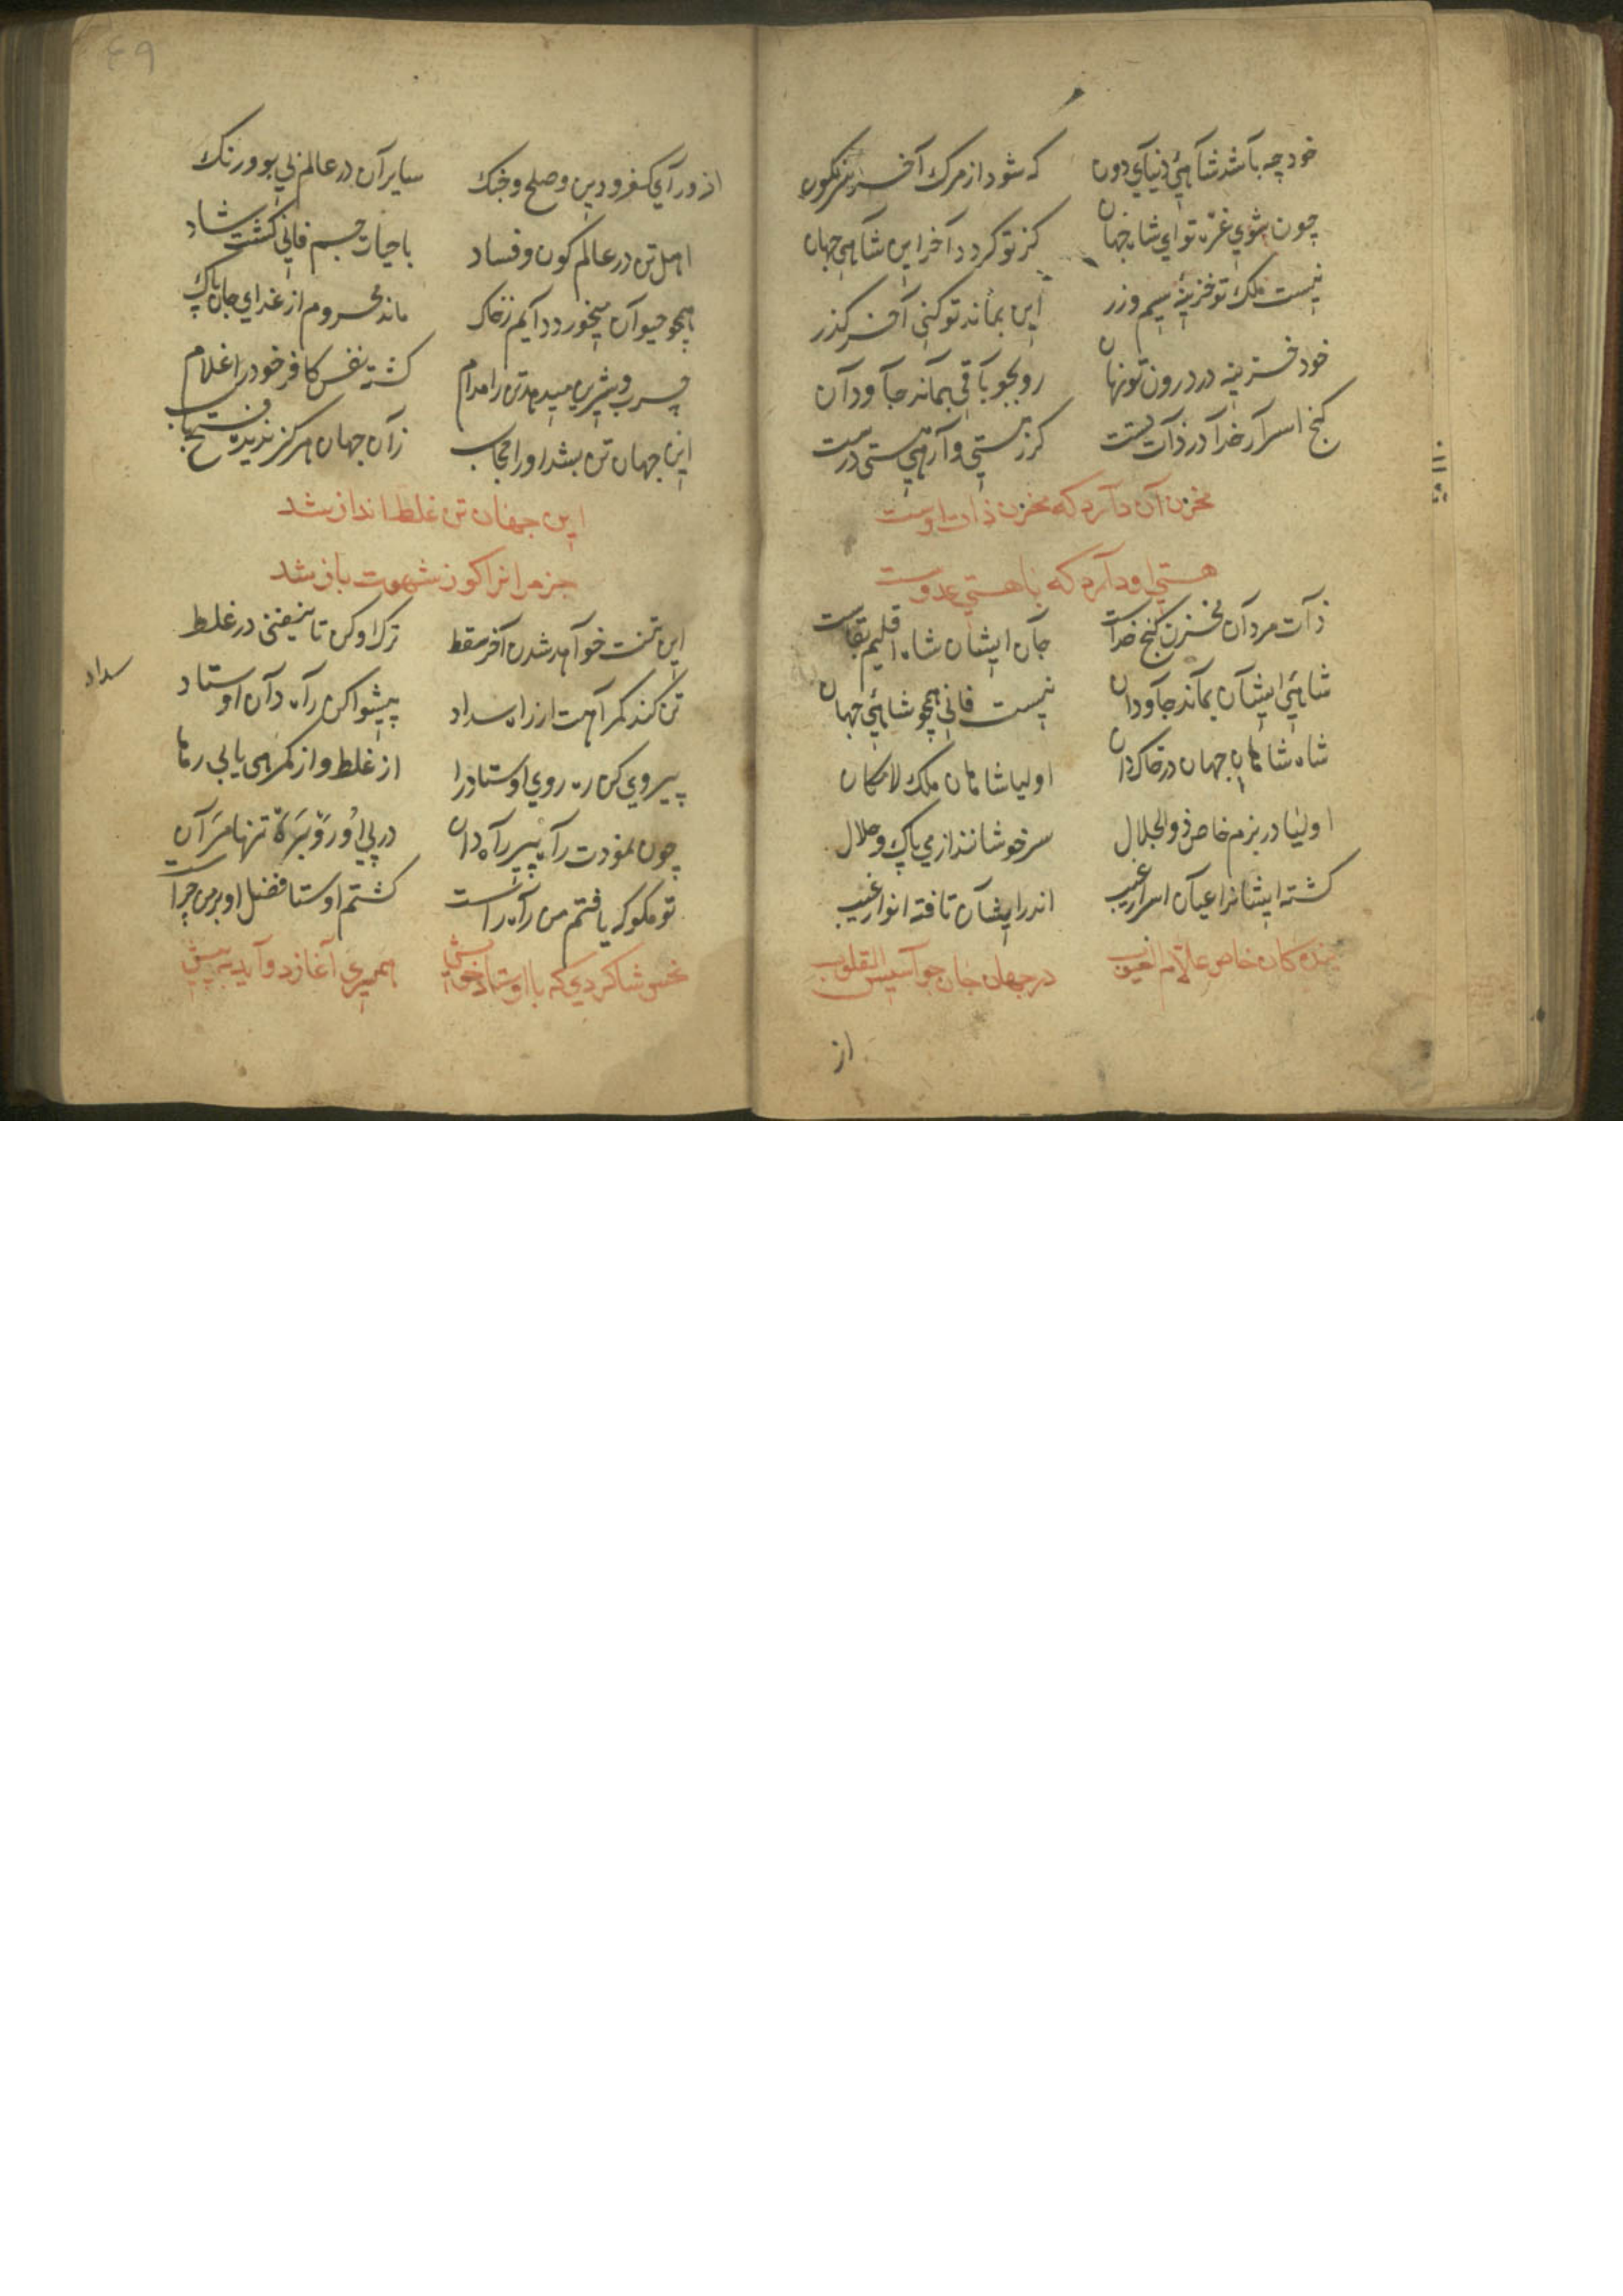 خود چه باشد شاهئ دنیای دون که شود از مرک آخر سرنکون
چون شوی غرّه تو ای شاه جهان کز تو کردد آخر این شاهی جهان
نیست ملک تو خزینهٔ سیم وزر این بماند تو کنی آخر کذر
خود خزینه در درون تو نهان رو بجو باقی بماند جاودان
کنج اسرار خدا در ذات تست کرز هستی وارهی هستی درست
مخزن آن دارد که مخزن ذات اوست
هستی او دارد که با هستی عدوست
ذات مردان مخزن کنج خداست جان ایشان شاه اقلیم بقاست
شاهئ ایشان بماند جاودان نیست فانی همچو شاهئ جهان
شاه شاهان جهان در خاک دان اولیا شاهان ملک لامکان
اولیا در بزم خاص ذوالجلال سرخوشانند از می پاک وحلال
کشته ایشانرا عیان اسرار غیب اندر ایشان تافته انوار غیب
بنده کان خاص علام الغیوب در جهان جان جواسیس القلوب
از
۴۹
از ورای کفر ودین وصلح وجنک سایران در عالم بی بو ورنک
اهل تن در عالم کون وفساد با حیات جسم فانی کشت شاد
همچو حیوان میخورد دایم زخاک ماند محروم از غدای جان پاک
چرب وشیرین میدهد تن را مدام کشته نفس کافر خود را غلام
این جهان تن بشد اورا حجاب زان جهان هرکز ندیده فتح باب
این جهان تن غلط انداز شد
جز مر انرا کو ز شهوت باز شد
این تنت خواهد شدن آخر سقط ترک او کن تا نیفتی در غلط
تن کند کمراهت از راه سداد پیشوا کن راه دان اوستاد
سداد
پیروی کن ره روی اوستاد را از غلط واز کمرهی یابی رها
چون نمودت راه پیر راه دان در پی او رو بره تنها مران
تو مکو که یافتم من راه راست کشتم اوستا فضل او بر من چراست
نحس شاکردی که با اوستاد خویش همسری آغازد وآید به پیش